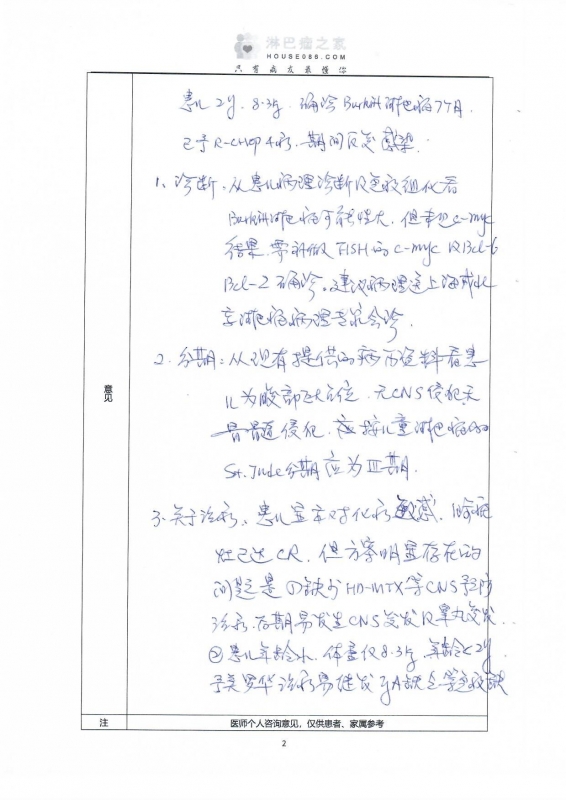 淋巴瘤之家
HOUSE086.COM
只有病友最懂你
患儿 2y. 8.3kg. 确诊 Burkitt 淋巴瘤 7个月.
已予 R-CHOP 4疗. 期间反复感染.
1、诊断. 从患儿病理诊断及免疫组化看
Burkitt淋巴瘤可能性大. 但未见 c-myc
结果. 需 FISH 的 c-myc 及 Bcl-6
Bcl-2 确诊. 建议病理送上海或北
京淋巴瘤病理专家会诊.
2. 分期: 从现有提供的病历资料看患
儿为腹部巨大占位. 无CNS侵犯无
骨髓侵犯. 按儿童淋巴瘤的
St. Jude分期 应为 III期.
3. 关于治疗. 患儿显示对化疗敏感.
灶已达 CR. 但方案明显存在的
问题是 ①缺少 HD-MTX 等 CNS 预防
治疗. 后期易发生CNS复发及睾丸复发.
②患儿年龄小. 体重仅 8.3kg. 年龄<2y.
予美罗华治疗易继发 IgA缺乏等免疫缺
意见
注
医师个人咨询意见，仅供患者、家属参考
2